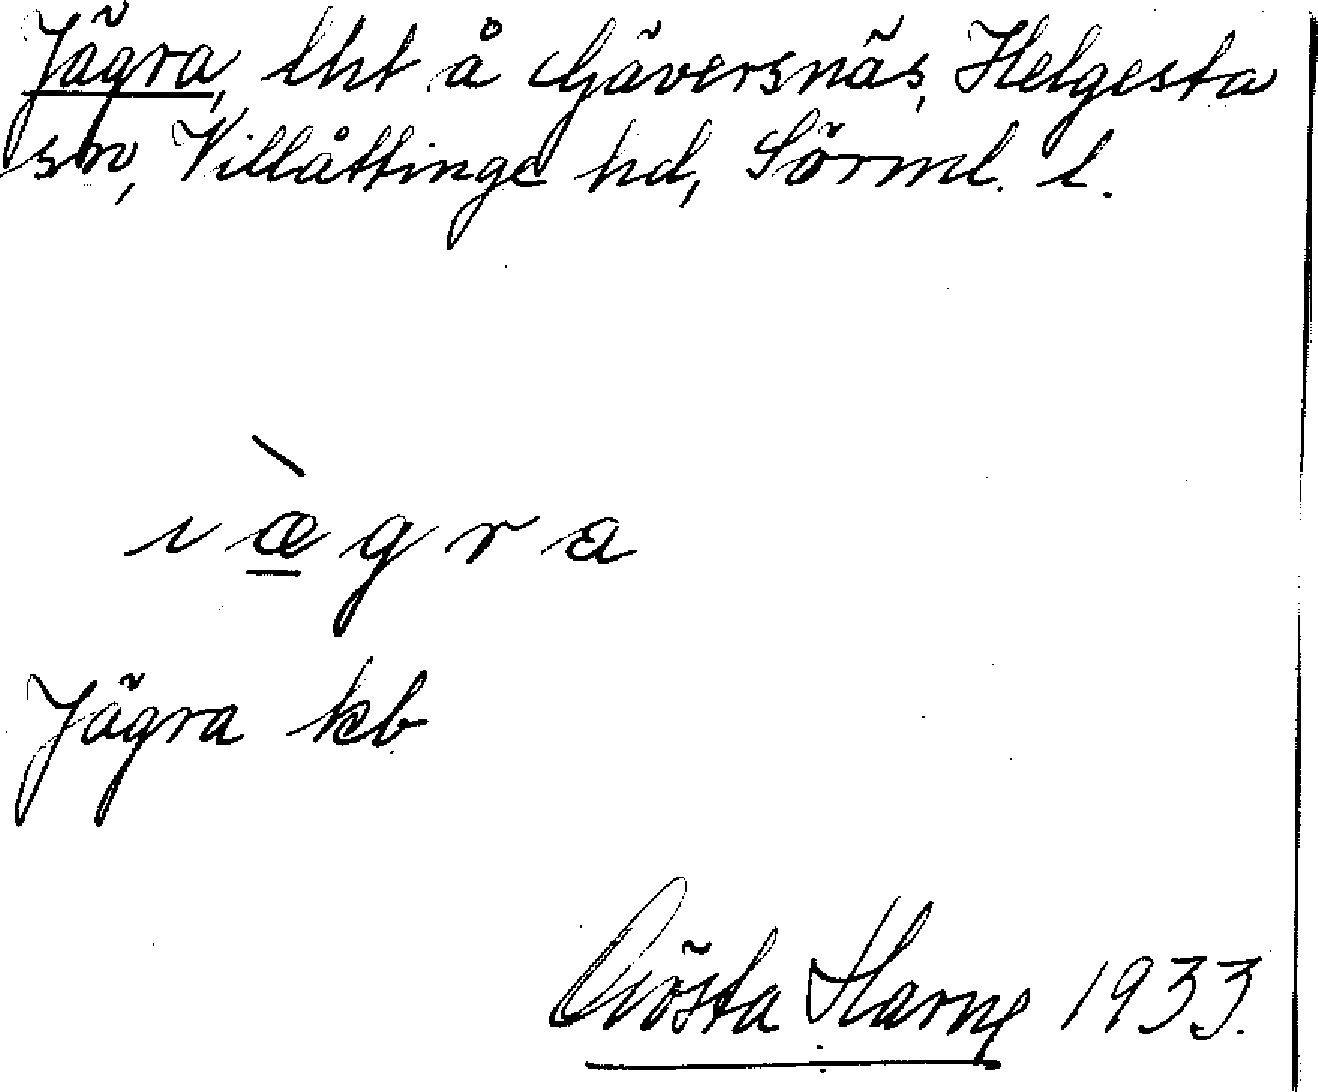 Jägra, lht å Gäversnäs, Helgesta
sn, Villåttinge hd, Sörml. l.
ı æ̀ g r a
Jägra kb
Gösta Harne 1933.